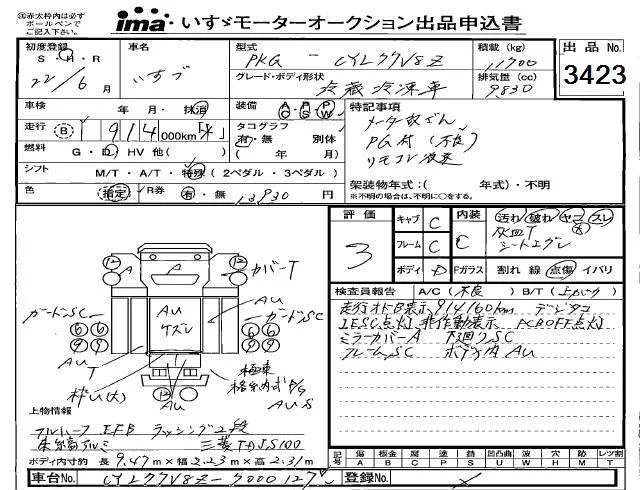 ※赤太枠内は必ず
ボールペンで
ご記入下さい。
ima いすゞモーターオークション出品申込書
初度登録 車名 型式 積載 (kg) 出品 No.
S・H・R いすゞ PKG - CYL77V8Z 11700
22/6月 グレード・ボディ形状 冷蔵冷凍車 排気量 (cc) 9830 3423
車検 年 月・抹消 装備 A/C P/S P/W 特記事項
走行 B 914 000km タコグラフ 有・無 別体 メーター改ざん
燃料 G・D・HV 他( ) ( 年 月) PG付(不良)
シフト M/T・A/T・特殊 (2ペダル・3ペダル) リモコン
色 指定 R券 有・無 円 架装物年式:( 年式)・不明
※不明の場合は、不明に○をする。
評価 キャブ C 内装 汚れ 破れ ヤニ スレ
3 フレーム C C 灰皿T
シートエグレ
ボディ D Fガラス 割れ 線 点傷 イバリ
検査員報告 A/C (不良) B/T (上がり)
走行オドB表示 914160km デジタコ
IESC点灯 非作動表示 PCBOFF点灯
ミラーカバーA 下廻りSC
フレームSC ボデー内AU
カバーT
A
A
AU
ケズレ
AU
ガードSC
ガードSC
AU
T
AU
極東
格納式P/G
AUS
上物情報
フルハーフ EFB ラッシング2段
朱鎬アルミ 三菱TDJS100
ボディ内寸約 長 9.47m × 幅 2.23m × 高 2.31m
記号 傷 A 板金 B 腐 C 塗 P 錆 S 凹凸曲 U 波 W 穴 H 跡 M レツ割 T
車台No. CYL77V8Z-7000127 登録No.